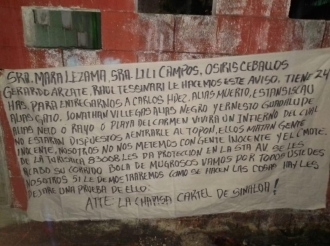 SRA. MARA LEZAMA, SRA. LILI CAMPOS, OSIRIS CEBALLOS
GERARDO ARZATE, RAUL TESSINARI LE HACEMOS ESTE AVISO. TIENE 24
HRS. PARA ENTREGARNOS A CARLOS ALIAS MUERTO, ESTANISLAO
ALIAS GATO, JONATHAN VILLEGAS ALIAS NEGRO Y ERNESTO GUADALUPE
ALIAS NELO O RAYO O PLAYA DEL CARMEN VIVIRA UN INFIERNO DEL CUAL
NO ESTARAN DISPUESTOS A ENTRARLE AL TOPON, ELLOS MATAN GENTE
INOCENTE, NOSOTROS NO NOS METEMOS CON GENTE INOCENTE Y EL CMDTE
DE LA TURISTICA LES DA PROTECCION EN LA 5TA AV. SE LES
ACABO SU CORRIDO BOLA DE MUGROSOS VAMOS POR TODOS USTEDES
NOSOTROS SI LE DEMOSTRAREMOS COMO SE HACEN LAS COSAS HAY LES
DEJARE UNA PRUEBA DE ELLO:
ATTE: LA CHAPISA CARTEL DE SINALOA!